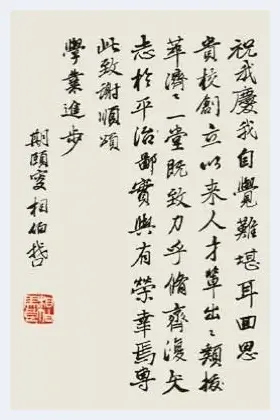 祝我慶我自覺難堪耳回思
貴校創立以來人才輩出〻類拔
萃濟〻一堂既致力乎脩齊復矢
志於平治鄙實與有榮幸焉專
此致謝順頌
學業進步
期頤叟相伯